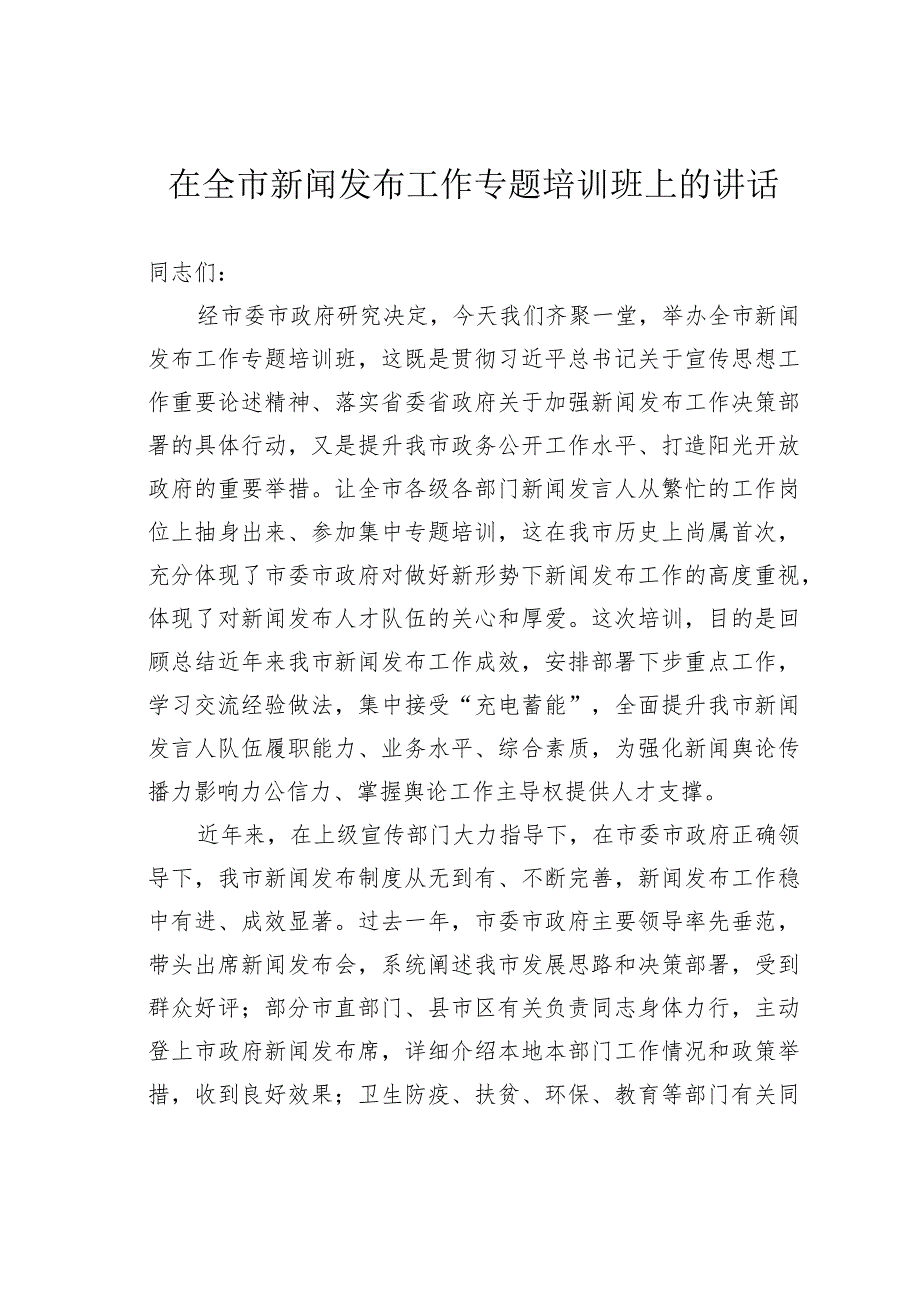 在全市新闻发布工作专题培训班上的讲话
同志们：
经市委市政府研究决定，今天我们齐聚一堂，举办全市新闻
发布工作专题培训班，这既是贯彻习近平总书记关于宣传思想工
作重要论述精神、落实省委省政府关于加强新闻发布工作决策部
署的具体行动，又是提升我市政务公开工作水平、打造阳光开放
政府的重要举措。让全市各级各部门新闻发言人从繁忙的工作岗
位上抽身出来、参加集中专题培训，这在我市历史上尚属首次，
充分体现了市委市政府对做好新形势下新闻发布工作的高度重视，
体现了对新闻发布人才队伍的关心和厚爱。这次培训，目的是回
顾总结近年来我市新闻发布工作成效，安排部署下步重点工作，
学习交流经验做法，集中接受“充电蓄能”，全面提升我市新闻
发言人队伍履职能力、业务水平、综合素质，为强化新闻舆论传
播力影响力公信力、掌握舆论工作主导权提供人才支撑。
近年来，在上级宣传部门大力指导下，在市委市政府正确领
导下，我市新闻发布制度从无到有、不断完善，新闻发布工作稳
中有进、成效显著。过去一年，市委市政府主要领导率先垂范，
带头出席新闻发布会，系统阐述我市发展思路和决策部署，受到
群众好评；部分市直部门、县市区有关负责同志身体力行，主动
登上市政府新闻发布席，详细介绍本地本部门工作情况和政策举
措，收到良好效果；卫生防疫、扶贫、环保、教育等部门有关同